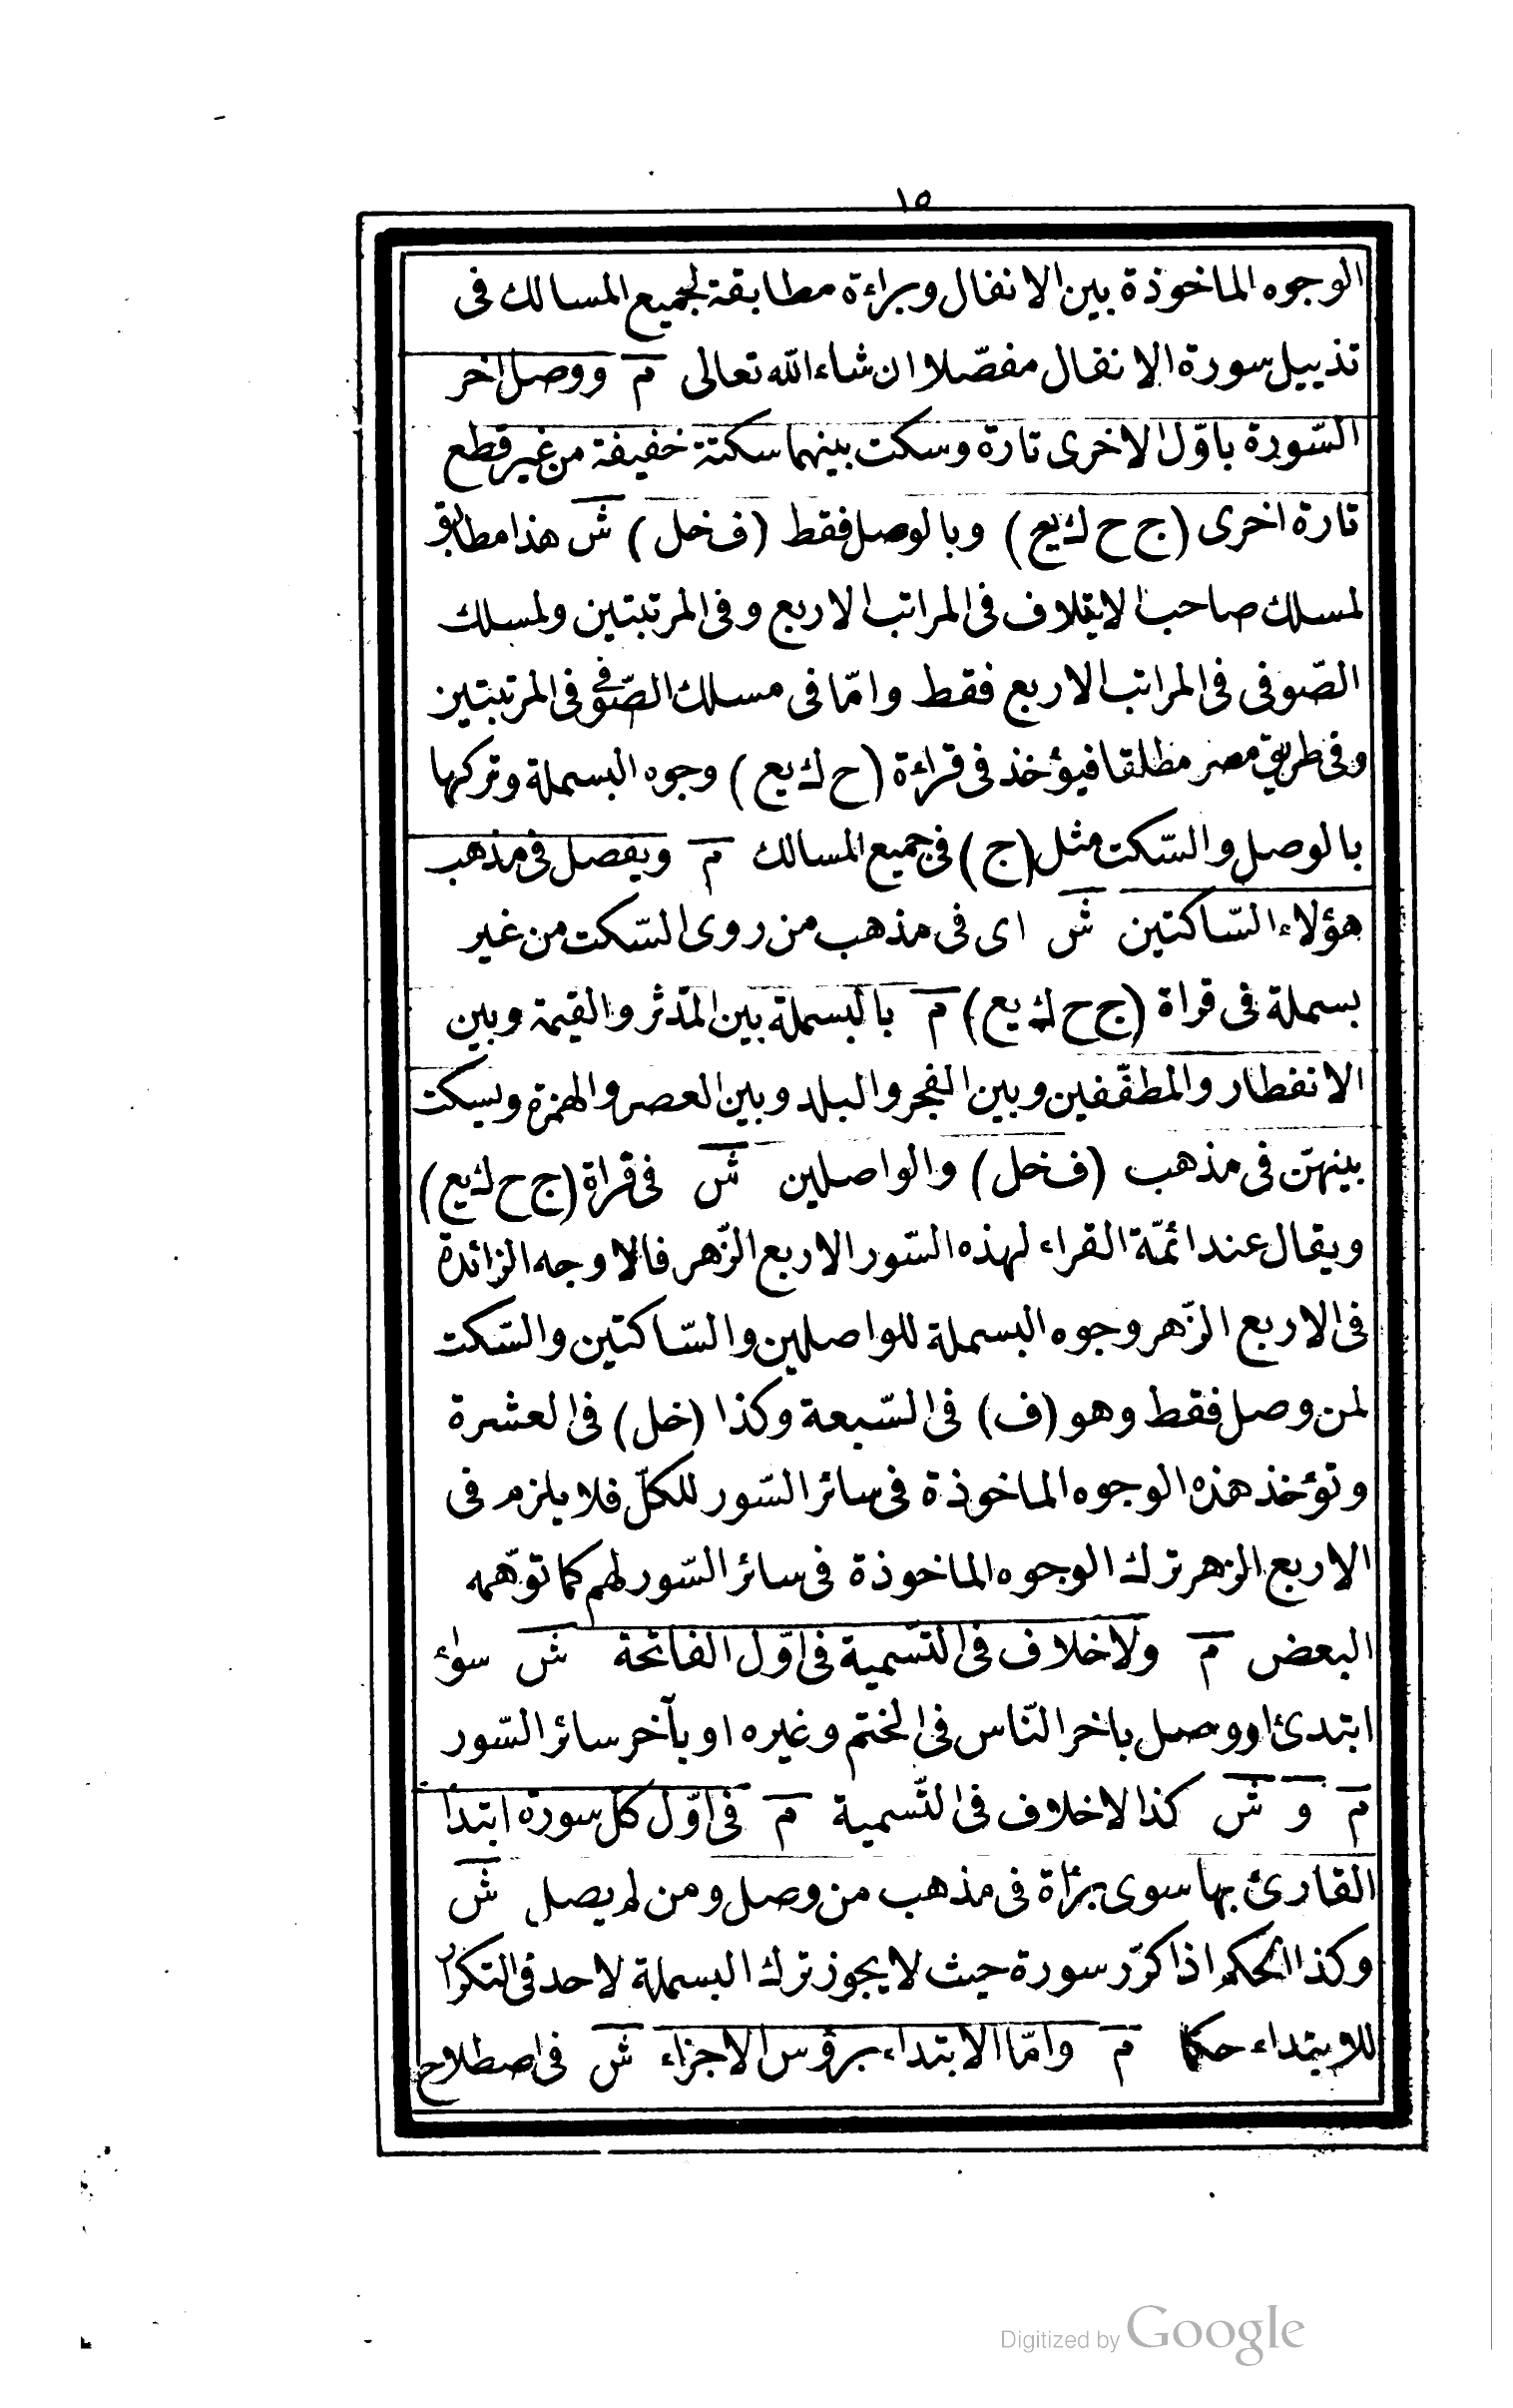 ١٥
الوجوه الماخوذة بين الانفال وبراءة مطابقة لجميع المسالك فى
تذييل سورة الانفال مفصّلا ان شاء الله تعالى م ووصل اخر
السّورة باوّل الاخرى تارة وسكت بينهما سكتة خفيفة من غير قطع
تارة اخرى (ج ح ك يع) وبالوصل فقط (ف خل) ش هذا مطابق
لمسلك صاحب الايتلاف فى المراتب الاربع وفى المرتبتين ولمسلك
الصّوفى فى المراتب الاربع فقط وامّا فى مسلك الصّوفى فى المرتبتين
وفى طريق مصر مطلقا فيؤخذ فى قراءة (ح ك يع) وجوه البسملة وتركها
بالوصل والسّكت مثل (ج) فى جميع المسالك م ويفصل فى مذهب
هؤلاء السّاكتين ش اى فى مذهب من روى السّكت من غير
بسملة فى قراة (ج ح ك يع) م بالبسملة بين المدّثر والقيمة وبين
الانفطار والمطفّفين وبين الفجر والبلد وبين العصر والهمزة ويسكت
بينهنّ فى مذهب (ف خل) والواصلين ش فى قراة (ج ح ك يع)
ويقال عند ائمّة القراء لهذه السّور الاربع الزّهر فالاوجه الزائدة
فى الاربع الزّهر وجوه البسملة للواصلين والسّاكتين والسّكت
لمن وصل فقط وهو (ف) فى السّبعة وكذا (خل) فى العشرة
وتؤخذ هذه الوجوه الماخوذة فى سائر السّور للكلّ فلا يلزم فى
الاربع الزهر ترك الوجوه الماخوذة فى سائر السّور لهم كما توهّمه
البعض م ولاخلاف فى التسّمية فى اوّل الفاتحة ش سواء
ابتدئ اووصل باخر النّاس فى الختم وغيره او بآخر سائر السّور
م و ش كذا لاخلاف فى التّسمية م فى اوّل كل سورة ابتدا
القارئ بها سوى براة فى مذهب من وصل ومن لم يصل ش
وكذا الحكم اذا كرّر سورة حيث لا يجوز ترك البسملة لاحد فى التكرار
للابتداء حكما م وامّا الابتداء برؤس الاجزاء ش فى اصطلاح
Digitized by Google